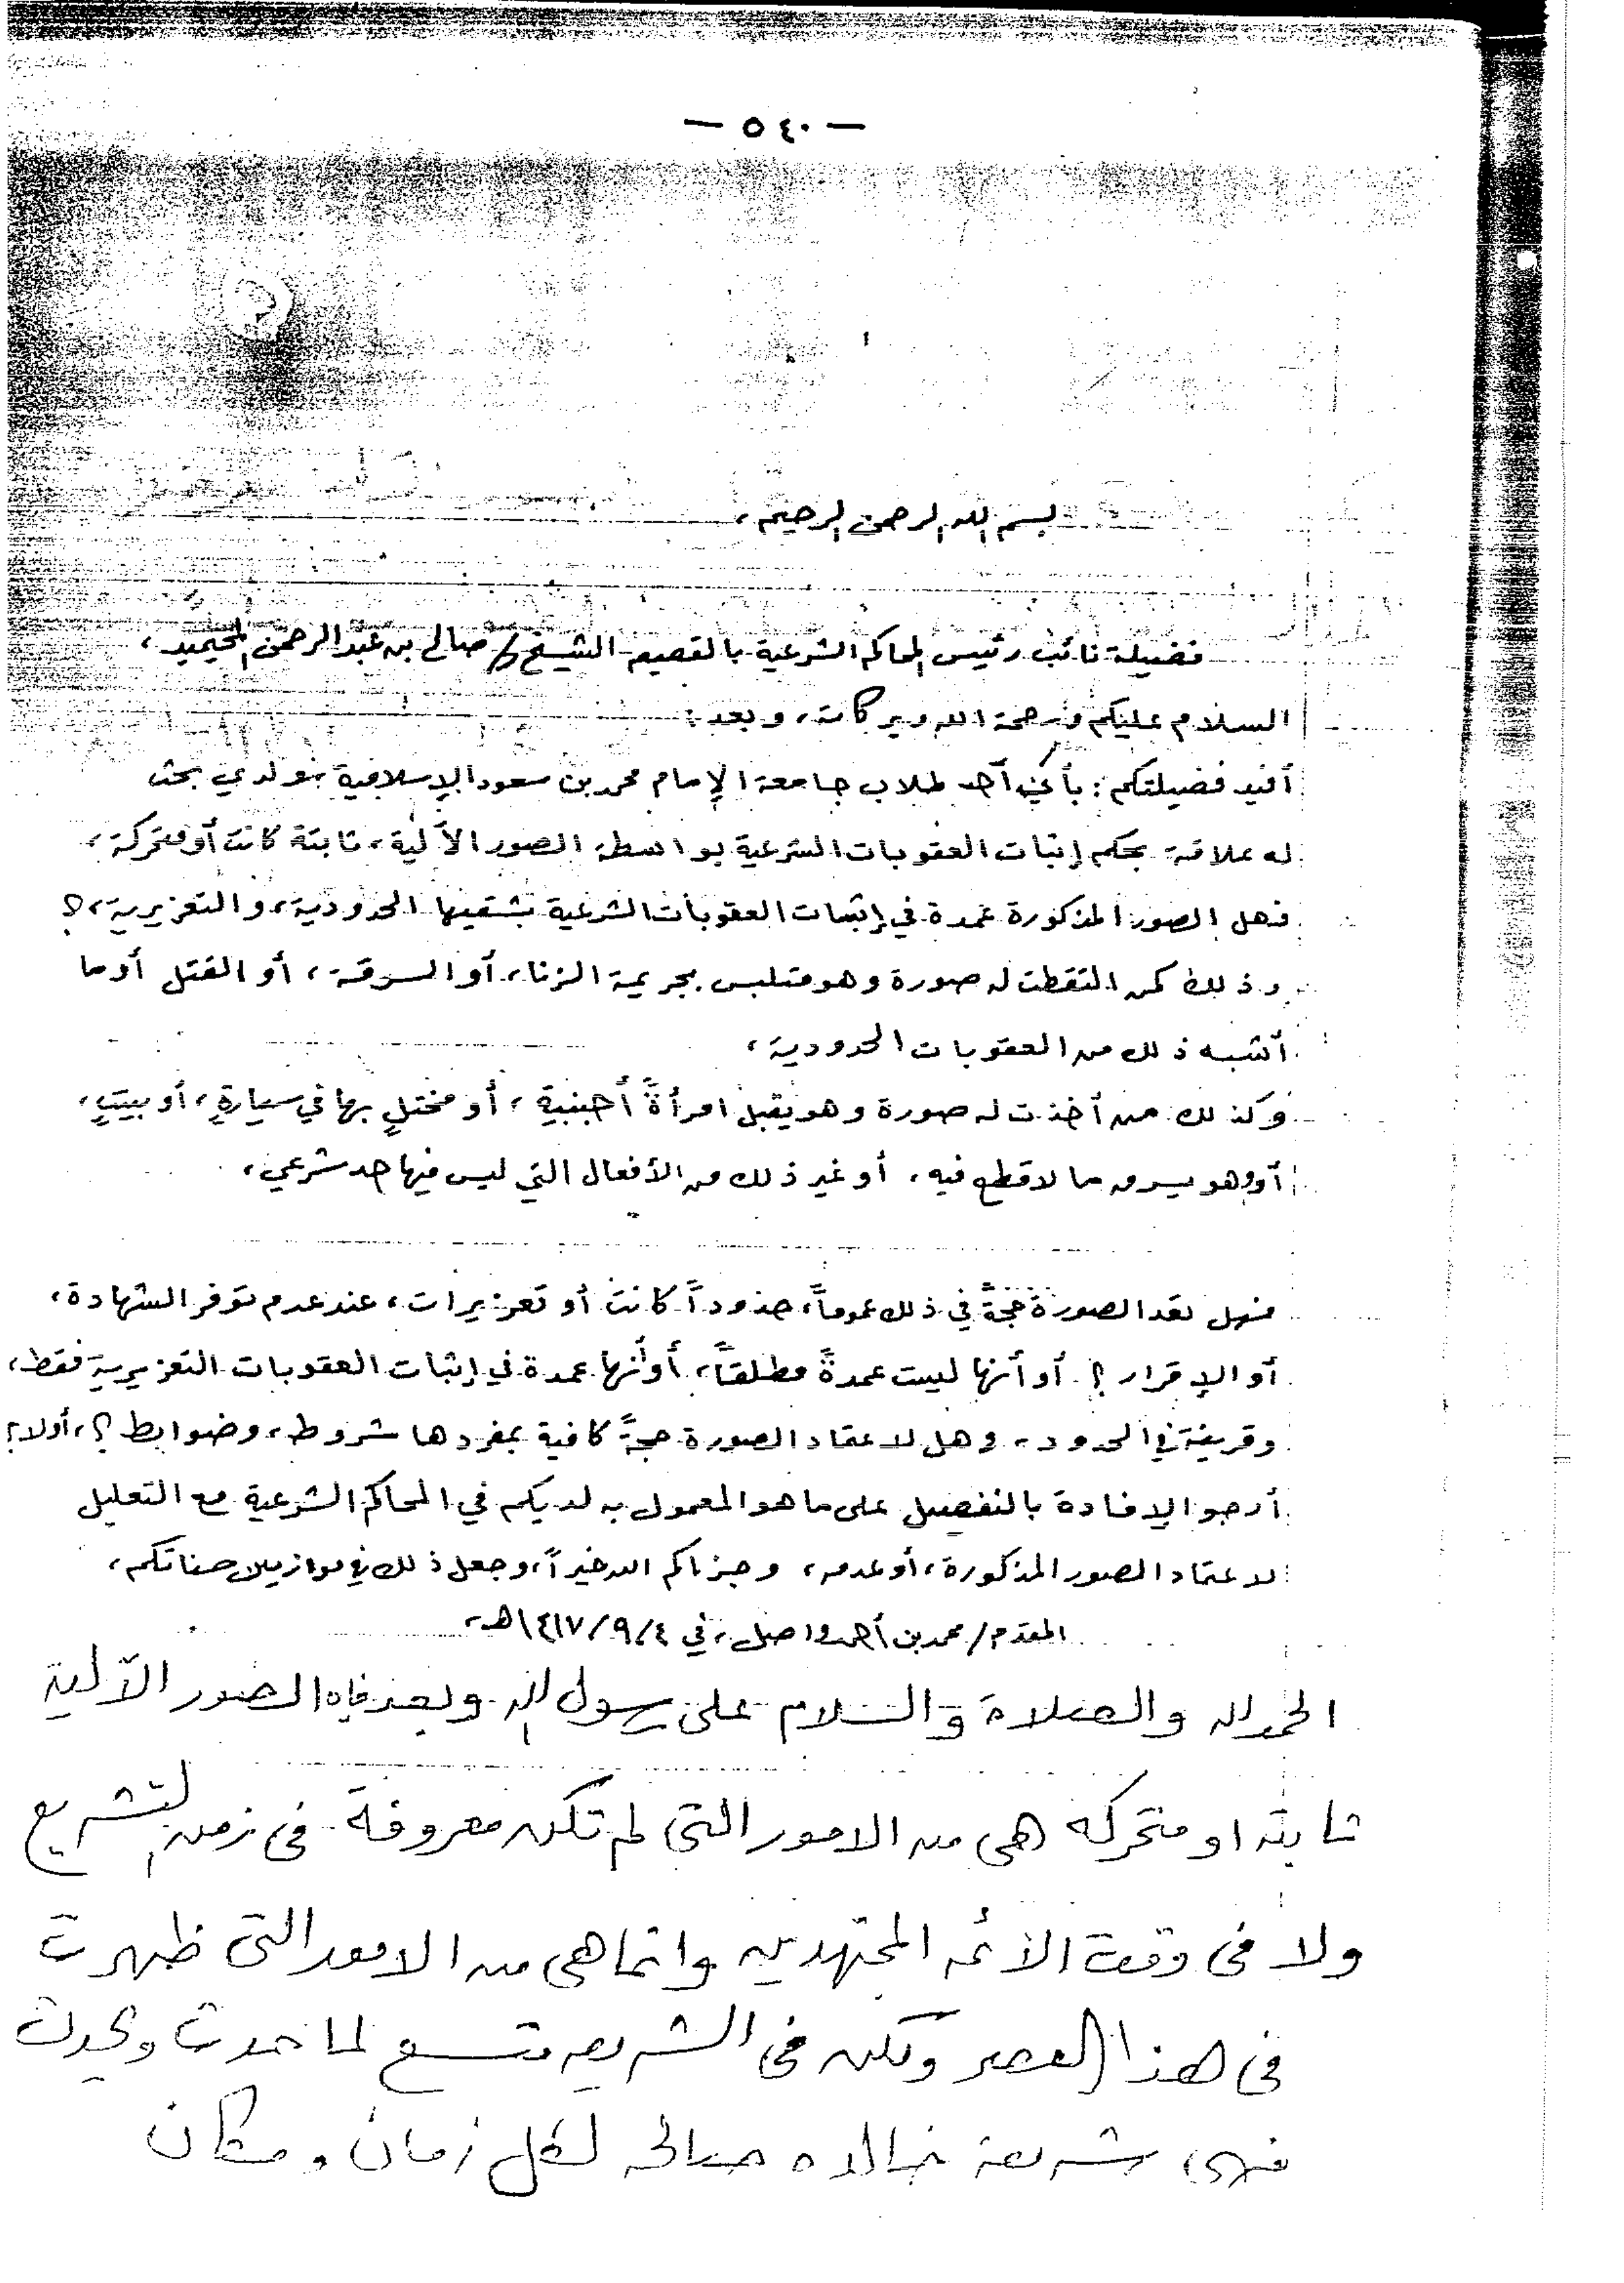 — ٥٤٠ —
بسم الله الرحمن الرحيم،
فضيلة نائب رئيس المحاكم الشرعية بالقصيم الشيخ/ صالح بن عبد الرحمن المحيميد،
السلام عليكم ورحمة الله وبركاته، وبعد:
أفيد فضيلتكم: بأني أحد طلاب جامعة الإمام محمد بن سعود الإسلامية، ولدي بحث
له علاقة بحكم إثبات العقوبات الشرعية بواسطة الصور الآلية، ثابتة كانت أو متحركة،
فهل الصور المذكورة عمدة في إثبات العقوبات الشرعية بشقيها الحدودية، والتعزيرية،؟
وذلك كمن التقطت له صورة وهو متلبس بجريمة الزنا، أو السرقة، أو القتل أو ما
أشبه ذلك من العقوبات الحدودية،
وكذلك من أخذت له صورة وهو يقبل امرأةً أجنبية، أو مختلٍ بها في سيارةٍ، أو بيتٍ،
أو وهو يسرق ما لا قطع فيه، أو غير ذلك من الأفعال التي ليس فيها حد شرعي،
فهل تعد الصورة حجة في ذلك عموماً، حدوداً كانت أو تعزيرات، عند عدم توفر الشهادة،
أو الإقرار؟ أو أنها ليست عمدةً مطلقاً، أو أنها عمدة في إثبات العقوبات التعزيرية فقط،
وقرينة في الحدود، وهل لاعتماد الصورة حجةً كافية بمفردها شروط، وضوابط؟، أولا؟
أرجو الإفادة بالتفصيل على ما هو المعمول به لديكم في المحاكم الشرعية مع التعليل
لاعتماد الصور المذكورة، أو عدمه، وجزاكم الله خيراً، وجعل ذلك في موازين حسناتكم،
المقدم/ محمد بن أحمد واصل، في ١٤١٧/٩/٤هـ،
الحمد لله والصلاة والسلام على رسول الله وبعد فإن الصور الآلية
ثابته او متحركه هي من الامور التي لم تكن معروفة في زمن التشريع
ولا في وقت الأئمه المجتهدين وانما هي من الامور التي ظهرت
في هذا العصر ولكن في الشريعه متسع لما حدث ويحدث
فهي شريعة خالده صالحه لكل زمان ومكان